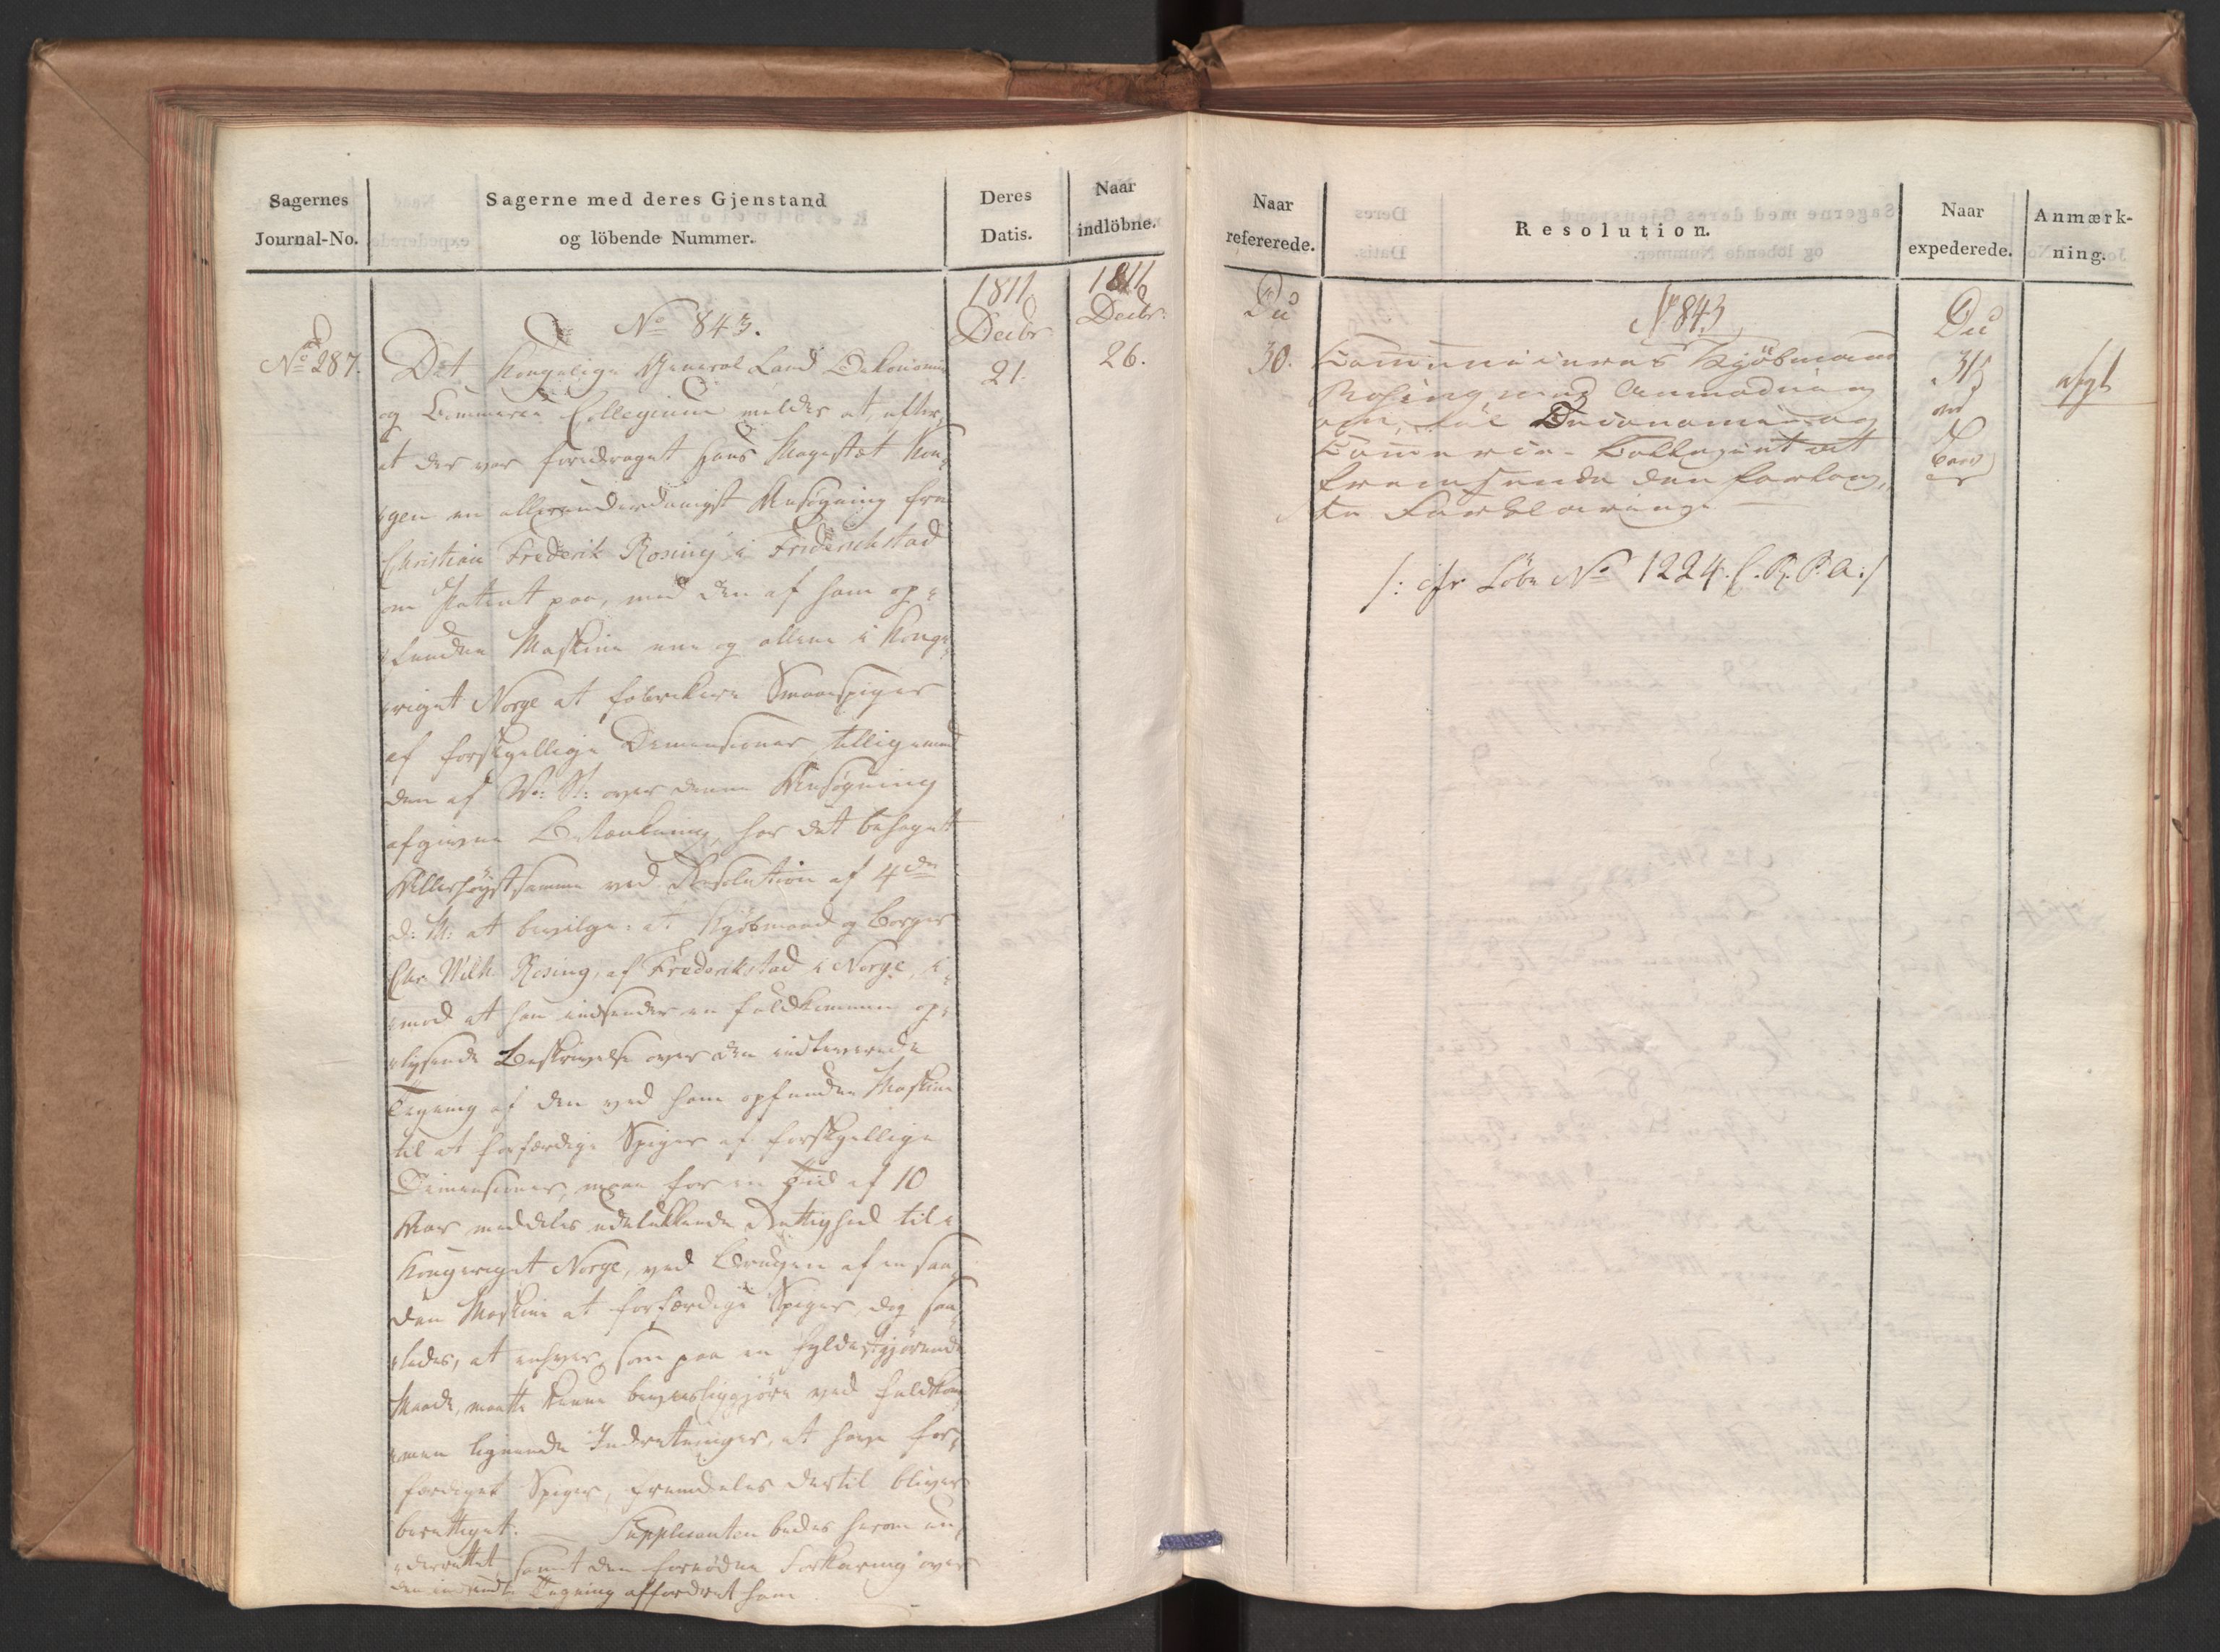 Sagernes
Journal-No.
Sagerne med deres Gjenstand
og löbende Nummer.
Deres
Datis.
Naar
indlöbne.
1811
Decbr
21.
1811
Decbr:
26.
No 287.
No 843.
Det Kongelige General Land Oekonomie
og Commerce Collegium melder at, efter
at der var foredraget Hans Majestæt Kon„
„gen en allerunderdanigst Ansøgning fra
Christian Frederik Rosing i Friderichstad
om Patent paa, med den af ham op„
„fundne Maskine ene og allene i Konge„
„riget Norge at fabrikere Smaaespiger
af forskjellige Dimensioner tilligemed
den af over denne Ansøgning
afgivne Betænkning, har det behaget
Allerhøystsamme ved Resolution af 4de
d: M: at bevilge: at Kjøbmand og Borger
Chr. Wilh. Rosing, af Frederikstad i Norge, i„
„mod at han indsender en fuldkommen op„
„lysende Beskrivelse over den indleverede
Tegning af den ved ham opfundne Maskine
til at forfærdige Spiger af forskjellige
Dimensioner, maae for en Tid af 10
Aar meddeles udelukkende Rettighed til i
Kongeriget Norge, ved Brugen af en saa„
dan Maskine at forfærdige Spiger, dog saa„
„ledes, at enhver, som paa en fyldestgjørende
Maade, maatte kunne beviisliggjøre ved fuldkom„
„men lignende Indretninger, at have for„
færdiget Spiger, fremdeles dertil bliver
berettiget. — Supplicanten bedes herom un„
„derrettet samt den fornødne Forklaring over
den indsendte Tegning affordret ham
Naar
refererede.
Resolution.
Naar
expederede.
Anmærk-
ning.
Du
30.
No 843
Communiceres Kjöbmand
Rosing med Anmodning
om, til Oeconomie og
Commerce-Collegiet at
fremsende den forlang„
te Forklaring. —
/: cfr Löbe No 1224. C. R. P. A:/
Du
31